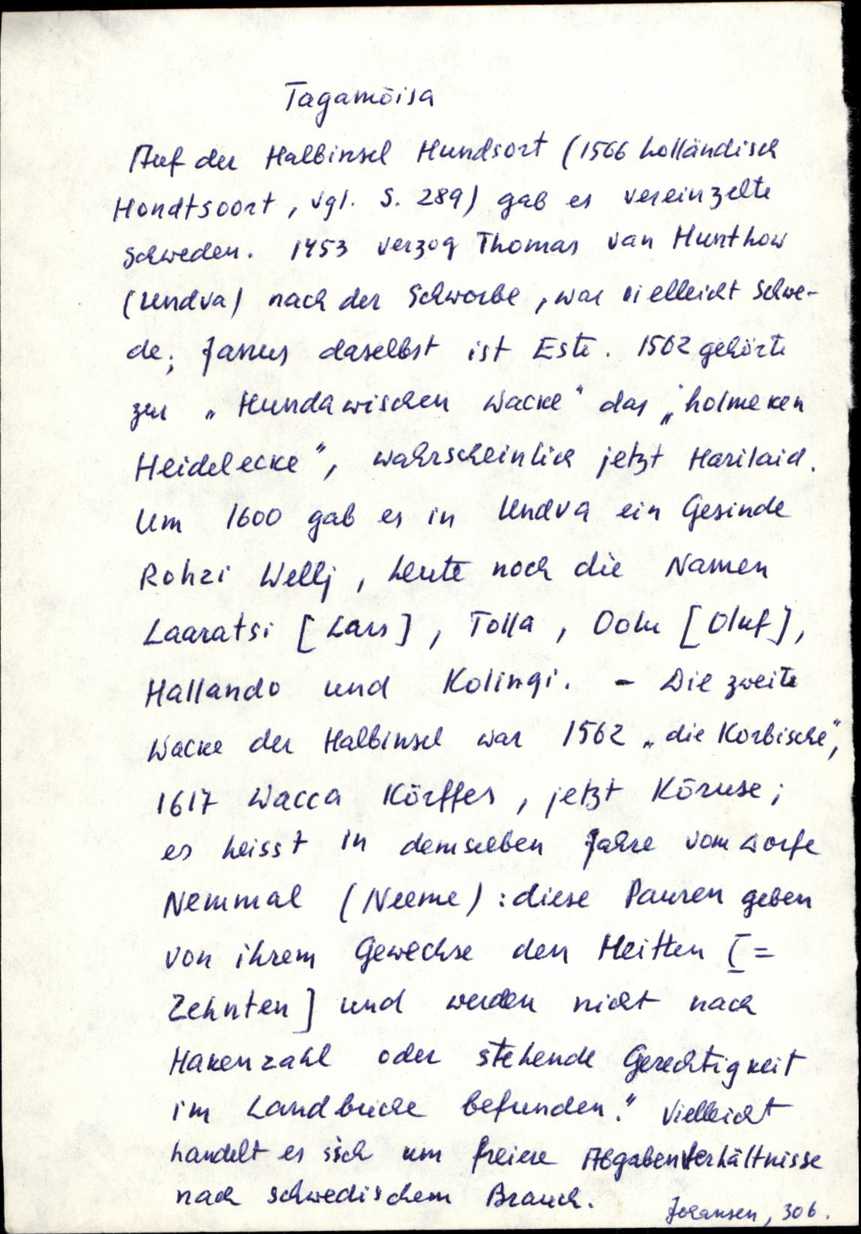 Tagamõisa
Auf der Halbinsel Hundsort (1566 holländisch
Hondtsoort, vgl. S. 289) gab es vereinzelte
Schweden. 1453 verzog Thomas van Hunthow
(Undva) nach der Schworbe, war vielleicht Schwe-
de; Jannus daselbst ist Este. 1562 gehörte
zur „Hundawischen Wacke" das „holmeken
Heidelecke", wahrscheinlich jetzt Harilaid.
Um 1600 gab es in Undva ein Gesinde
Rohzi Wellj, heute noch die Namen
Laaratsi [Lars], Tolla, Oolu [Oluf],
Hallando und Kolingi. – Die zweite
Wacke der Halbinsel war 1562 „die Korbische",
1617 Wacca Körffer, jetzt Kõruse;
es heisst in demselben Jahre vom Dorfe
Nemmal (Neeme): diese Pauren geben
von ihrem Gewechse den Heitten [=
Zehnten] und werden nicht nach
Hakenzahl oder stehende Gerechtigkeit
im Landbuche befunden." Vielleicht
handelt es sich um freiere Abgabenverhältnisse
nach schwedischem Brauch.
Johansen, 306.